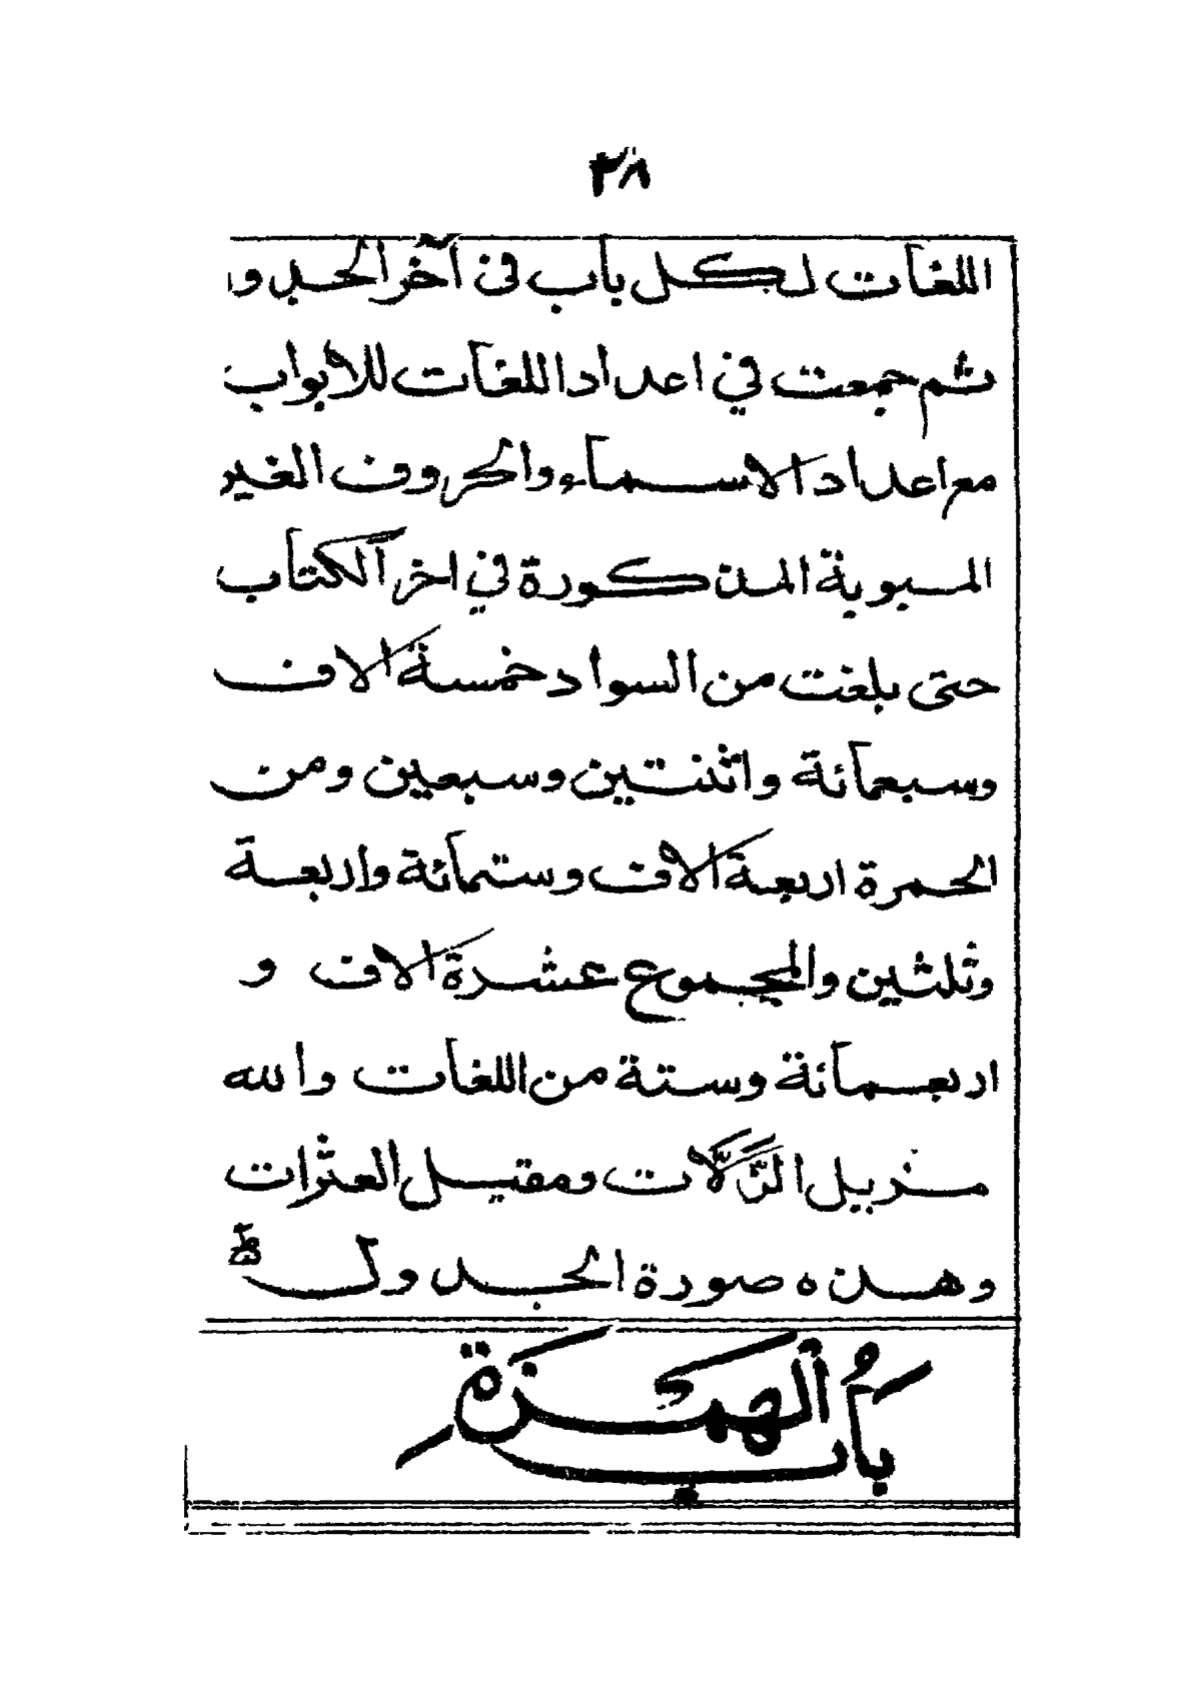 ٣٨
اللغات لكل باب فى آخر الجدول
ثم جمعت في اعداد اللغات للابواب
مع اعداد الاسماء والحروف الغير
المبوبة المذكورة في اخر الكتاب
حتى بلغت من السواد خمسة الاف
وسبعمائة واثنتين وسبعين ومن
الحمرة اربعة الاف وستمائة واربعة
وثلثين والمجموع عشرة الاف و
اربعمائة وستة من اللغات والله
مزيل الزَّلَّات ومقيل العثرات
وهذه صورة الجدول
بابُ الهمزة